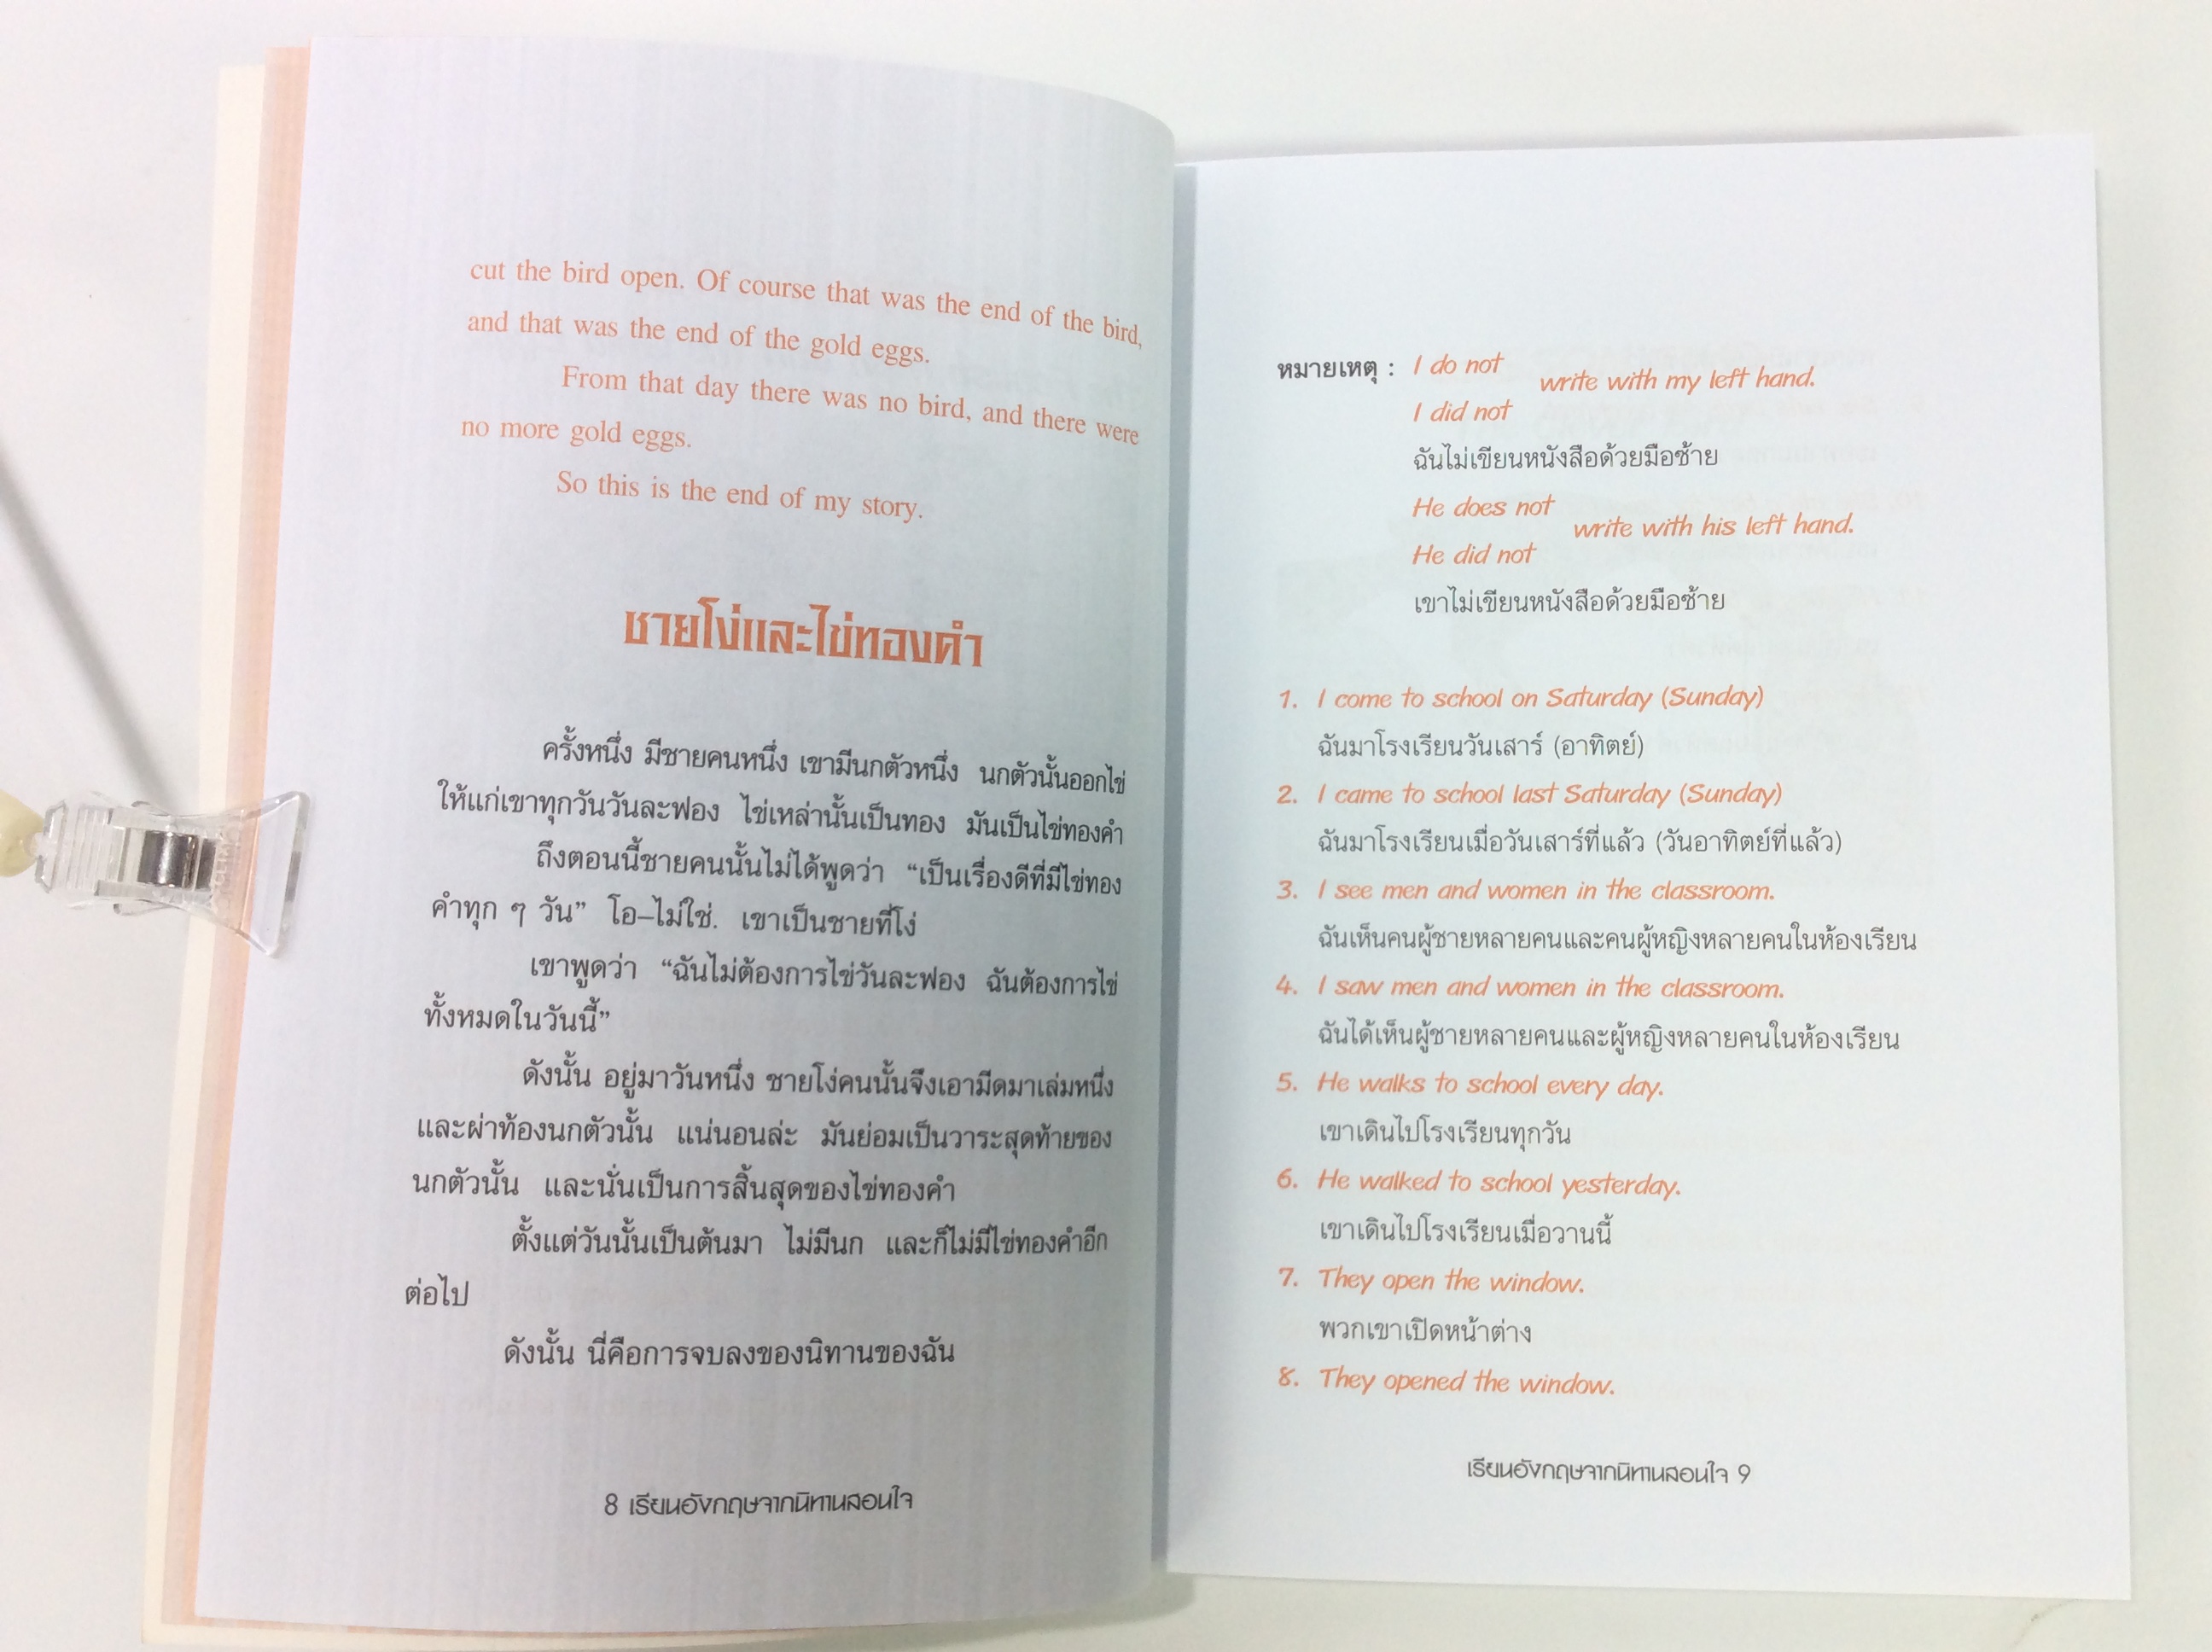 cut the bird open. Of course that was the end of the bird,
and that was the end of the gold eggs.
From that day there was no bird, and there were
no more gold eggs.
So this is the end of my story.
ชายโง่และไข่ทองคำ
ครั้งหนึ่ง มีชายคนหนึ่ง เขามีนกตัวหนึ่ง นกตัวนั้นออกไข่
ให้แก่เขาทุกวันวันละฟอง ไข่เหล่านั้นเป็นทอง มันเป็นไข่ทองคำ
ถึงตอนนี้ชายคนนั้นไม่ได้พูดว่า “เป็นเรื่องดีที่มีไข่ทอง
คำทุก ๆ วัน” โอ–ไม่ใช่. เขาเป็นชายที่โง่
เขาพูดว่า “ฉันไม่ต้องการไข่วันละฟอง ฉันต้องการไข่
ทั้งหมดในวันนี้”
ดังนั้น อยู่มาวันหนึ่ง ชายโง่คนนั้นจึงเอามีดมาเล่มหนึ่ง
และผ่าท้องนกตัวนั้น แน่นอนล่ะ มันย่อมเป็นวาระสุดท้ายของ
นกตัวนั้น และนั่นเป็นการสิ้นสุดของไข่ทองคำ
ตั้งแต่วันนั้นเป็นต้นมา ไม่มีนก และก็ไม่มีไข่ทองคำอีก
ต่อไป
ดังนั้น นี่คือการจบลงของนิทานของฉัน
8 เรียนอังกฤษจากนิทานสอนใจ
หมายเหตุ : I do not
write with my left hand.
I did not
ฉันไม่เขียนหนังสือด้วยมือซ้าย
He does not
write with his left hand.
He did not
เขาไม่เขียนหนังสือด้วยมือซ้าย
1. I come to school on Saturday (Sunday)
ฉันมาโรงเรียนวันเสาร์ (อาทิตย์)
2. I came to school last Saturday (Sunday)
ฉันมาโรงเรียนเมื่อวันเสาร์ที่แล้ว (วันอาทิตย์ที่แล้ว)
3. I see men and women in the classroom.
ฉันเห็นคนผู้ชายหลายคนและคนผู้หญิงหลายคนในห้องเรียน
4. I saw men and women in the classroom.
ฉันได้เห็นผู้ชายหลายคนและผู้หญิงหลายคนในห้องเรียน
5. He walks to school every day.
เขาเดินไปโรงเรียนทุกวัน
6. He walked to school yesterday.
เขาเดินไปโรงเรียนเมื่อวานนี้
7. They open the window.
พวกเขาเปิดหน้าต่าง
8. They opened the window.
เรียนอังกฤษจากนิทานสอนใจ 9